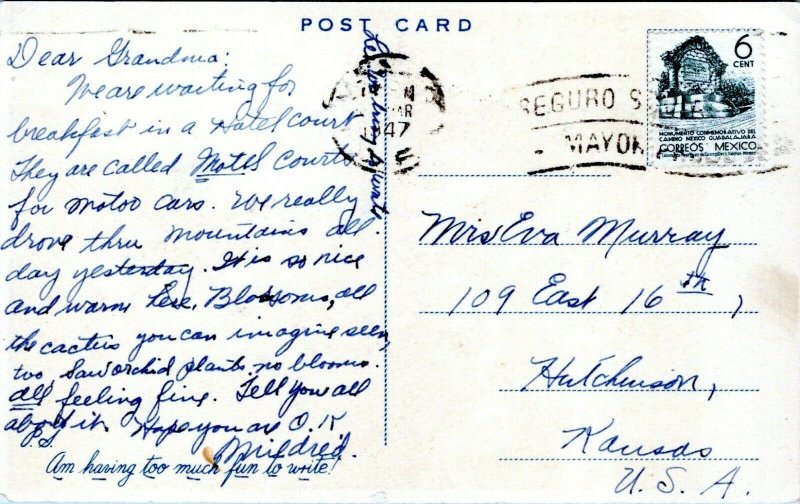 POST CARD
Dear Grandma:
We are waiting for
breakfast in a Hotel court
They are called Motel Courts
for motoo cars. We really
drove thru mountains all
day yesterday. It is so nice
and warm here. Blossoms, all
the cactus you can imagine seen,
too, Saw orchid plants. no blooms.
All feeling fine. Tell you all
about it. Hope you are O.K
P.S. Mildred.
Am having too much fun to write!
MAR
47
SEGURO S
MAYOR
6
CENT
MONUMENTO CONMEMORATIVO DEL
CAMINO MEXICO GUADALAJARA
CORREOS MEXICO
Mrs Eva Murray
109 East 16th,
Hutchinson,
Kansas
U. S. A.